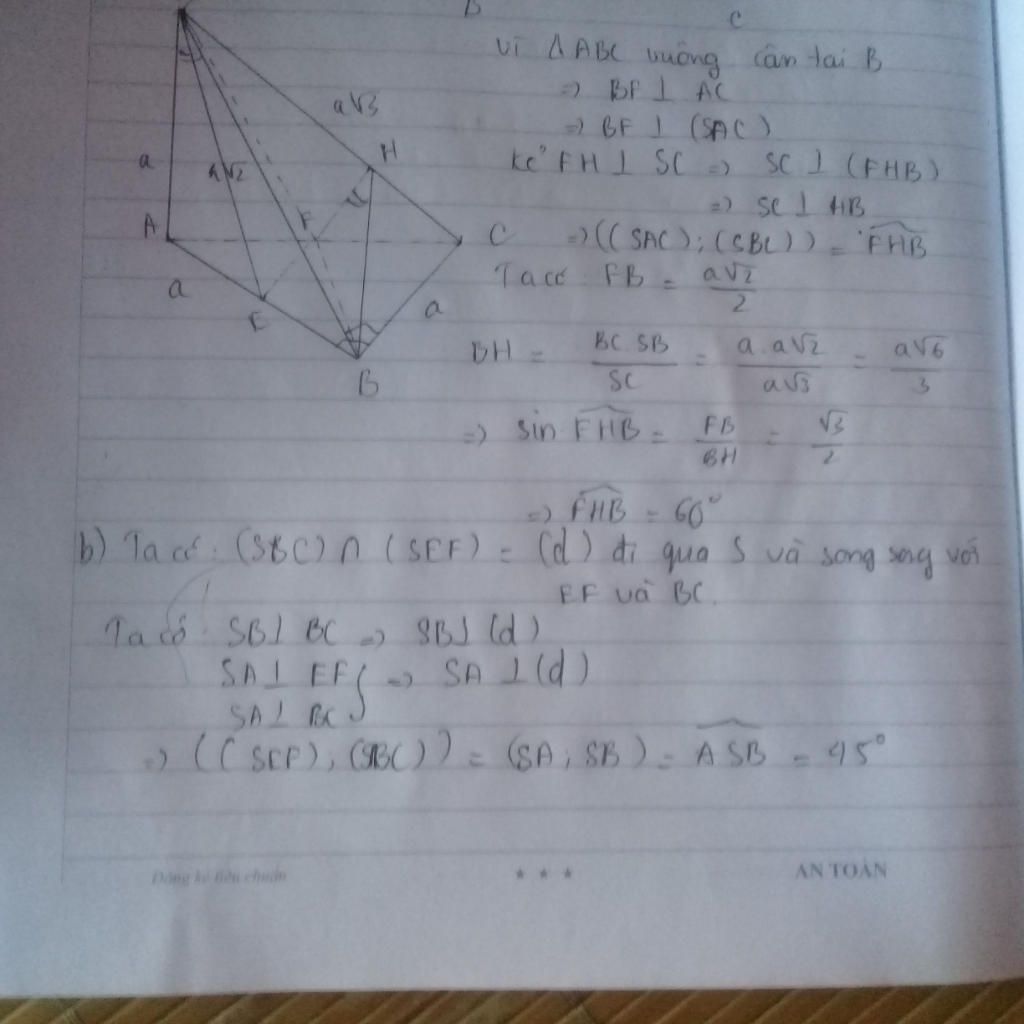 B C
vì Δ ABC vuông cân tại B
=> BF ⊥ AC
=> BF ⊥ (SAC)
Kẻ FH ⊥ SC => SC ⊥ (FHB)
=> SC ⊥ HB
=> ((SAC);(SBC)) = \widehat{FHB}
Ta có: FB = \frac{a√2}{2}
BH = \frac{BC.SB}{SC} = \frac{a.a√2}{a√3} = \frac{a√6}{3}
=> sin \widehat{FHB} = \frac{FB}{BH} = \frac{√3}{2}
=> \widehat{FHB} = 60°
a√3
H
a
a√2
A
F
C
a
E
a
B
b) Ta có: (SBC) ∩ (SEF) = (d) đi qua S và song song với
EF và BC.
Ta có: SB ⊥ BC => SB ⊥ (d)
SA ⊥ EF } => SA ⊥ (d)
SA ⊥ BC
=> ((SEF);(SBC)) = (SA;SB) = \widehat{ASB} = 45°
Đăng kí tiêu chuẩn * * * AN TOÀN